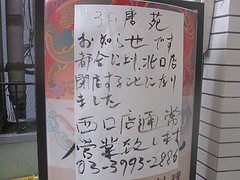 お知らせです
都合により、北口店
閉店することになり
ました
西口店通常
営業致します
03-3993-2886